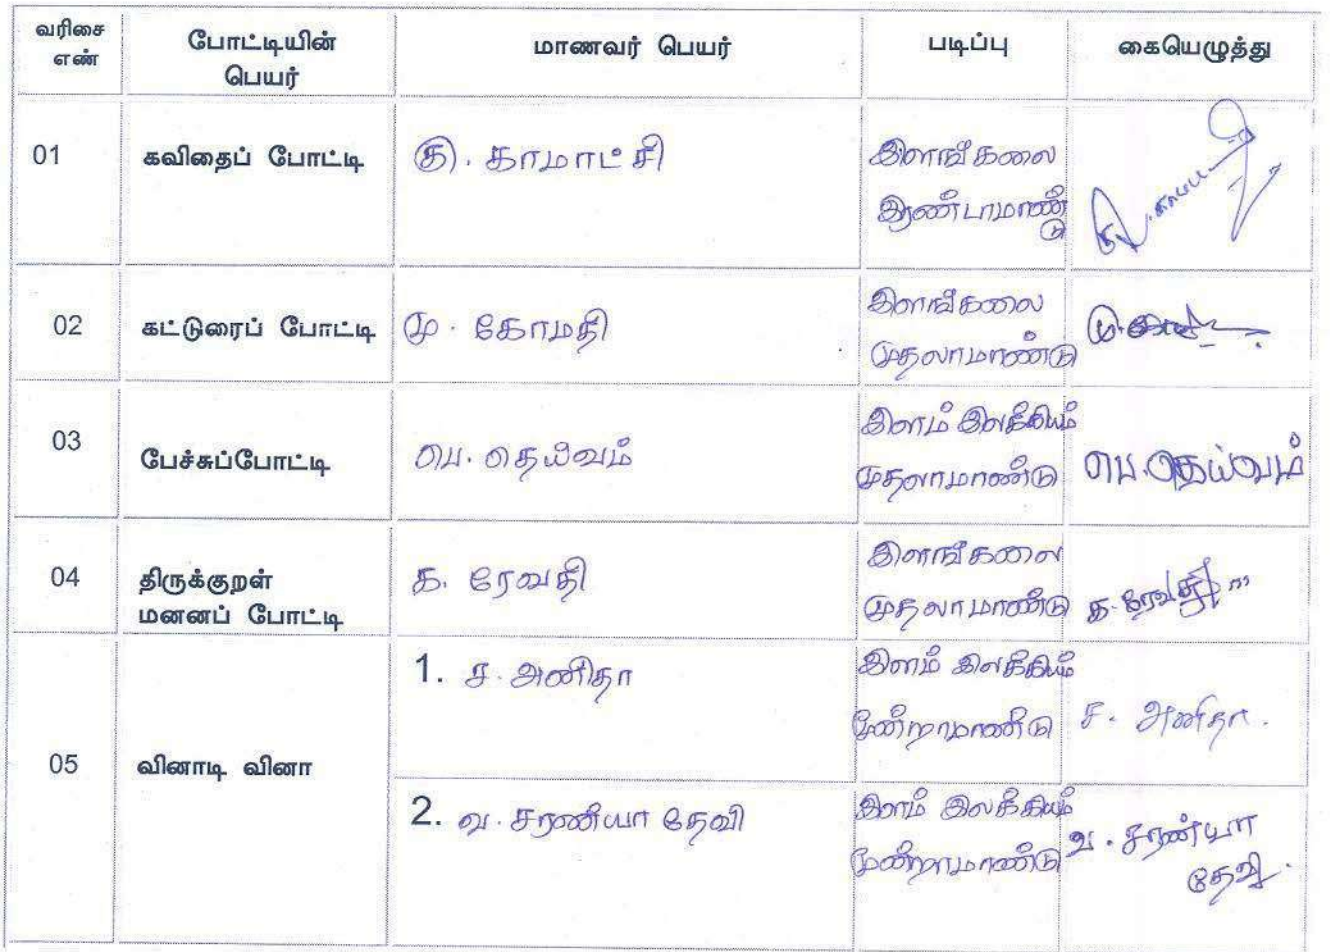 வரிசை எண் போட்டியின் பெயர் மாணவர் பெயர் படிப்பு கையெழுத்து
01 கவிதைப் போட்டி கி. காமாட்சி இளங்கலை
இரண்டாமாண்டு
02 கட்டுரைப் போட்டி மு. கோமதி இளங்கலை
முதலாமாண்டு
03 பேச்சுப்போட்டி பெ. தெய்வம் இளம் இலக்கியம்
முதலாமாண்டு பெ. தெய்வம்
04 திருக்குறள் க. ரேவதி இளங்கலை
மனனப் போட்டி முதலாமாண்டு க. ரேவதி
05 வினாடி வினா
1. ச. அனிதா இளம் இலக்கியம்
மூன்றாமாண்டு ச. அனிதா.
2. வ. சரண்யா தேவி இளம் இலக்கியம்
மூன்றாமாண்டு வ. சரண்யா
தேவி.